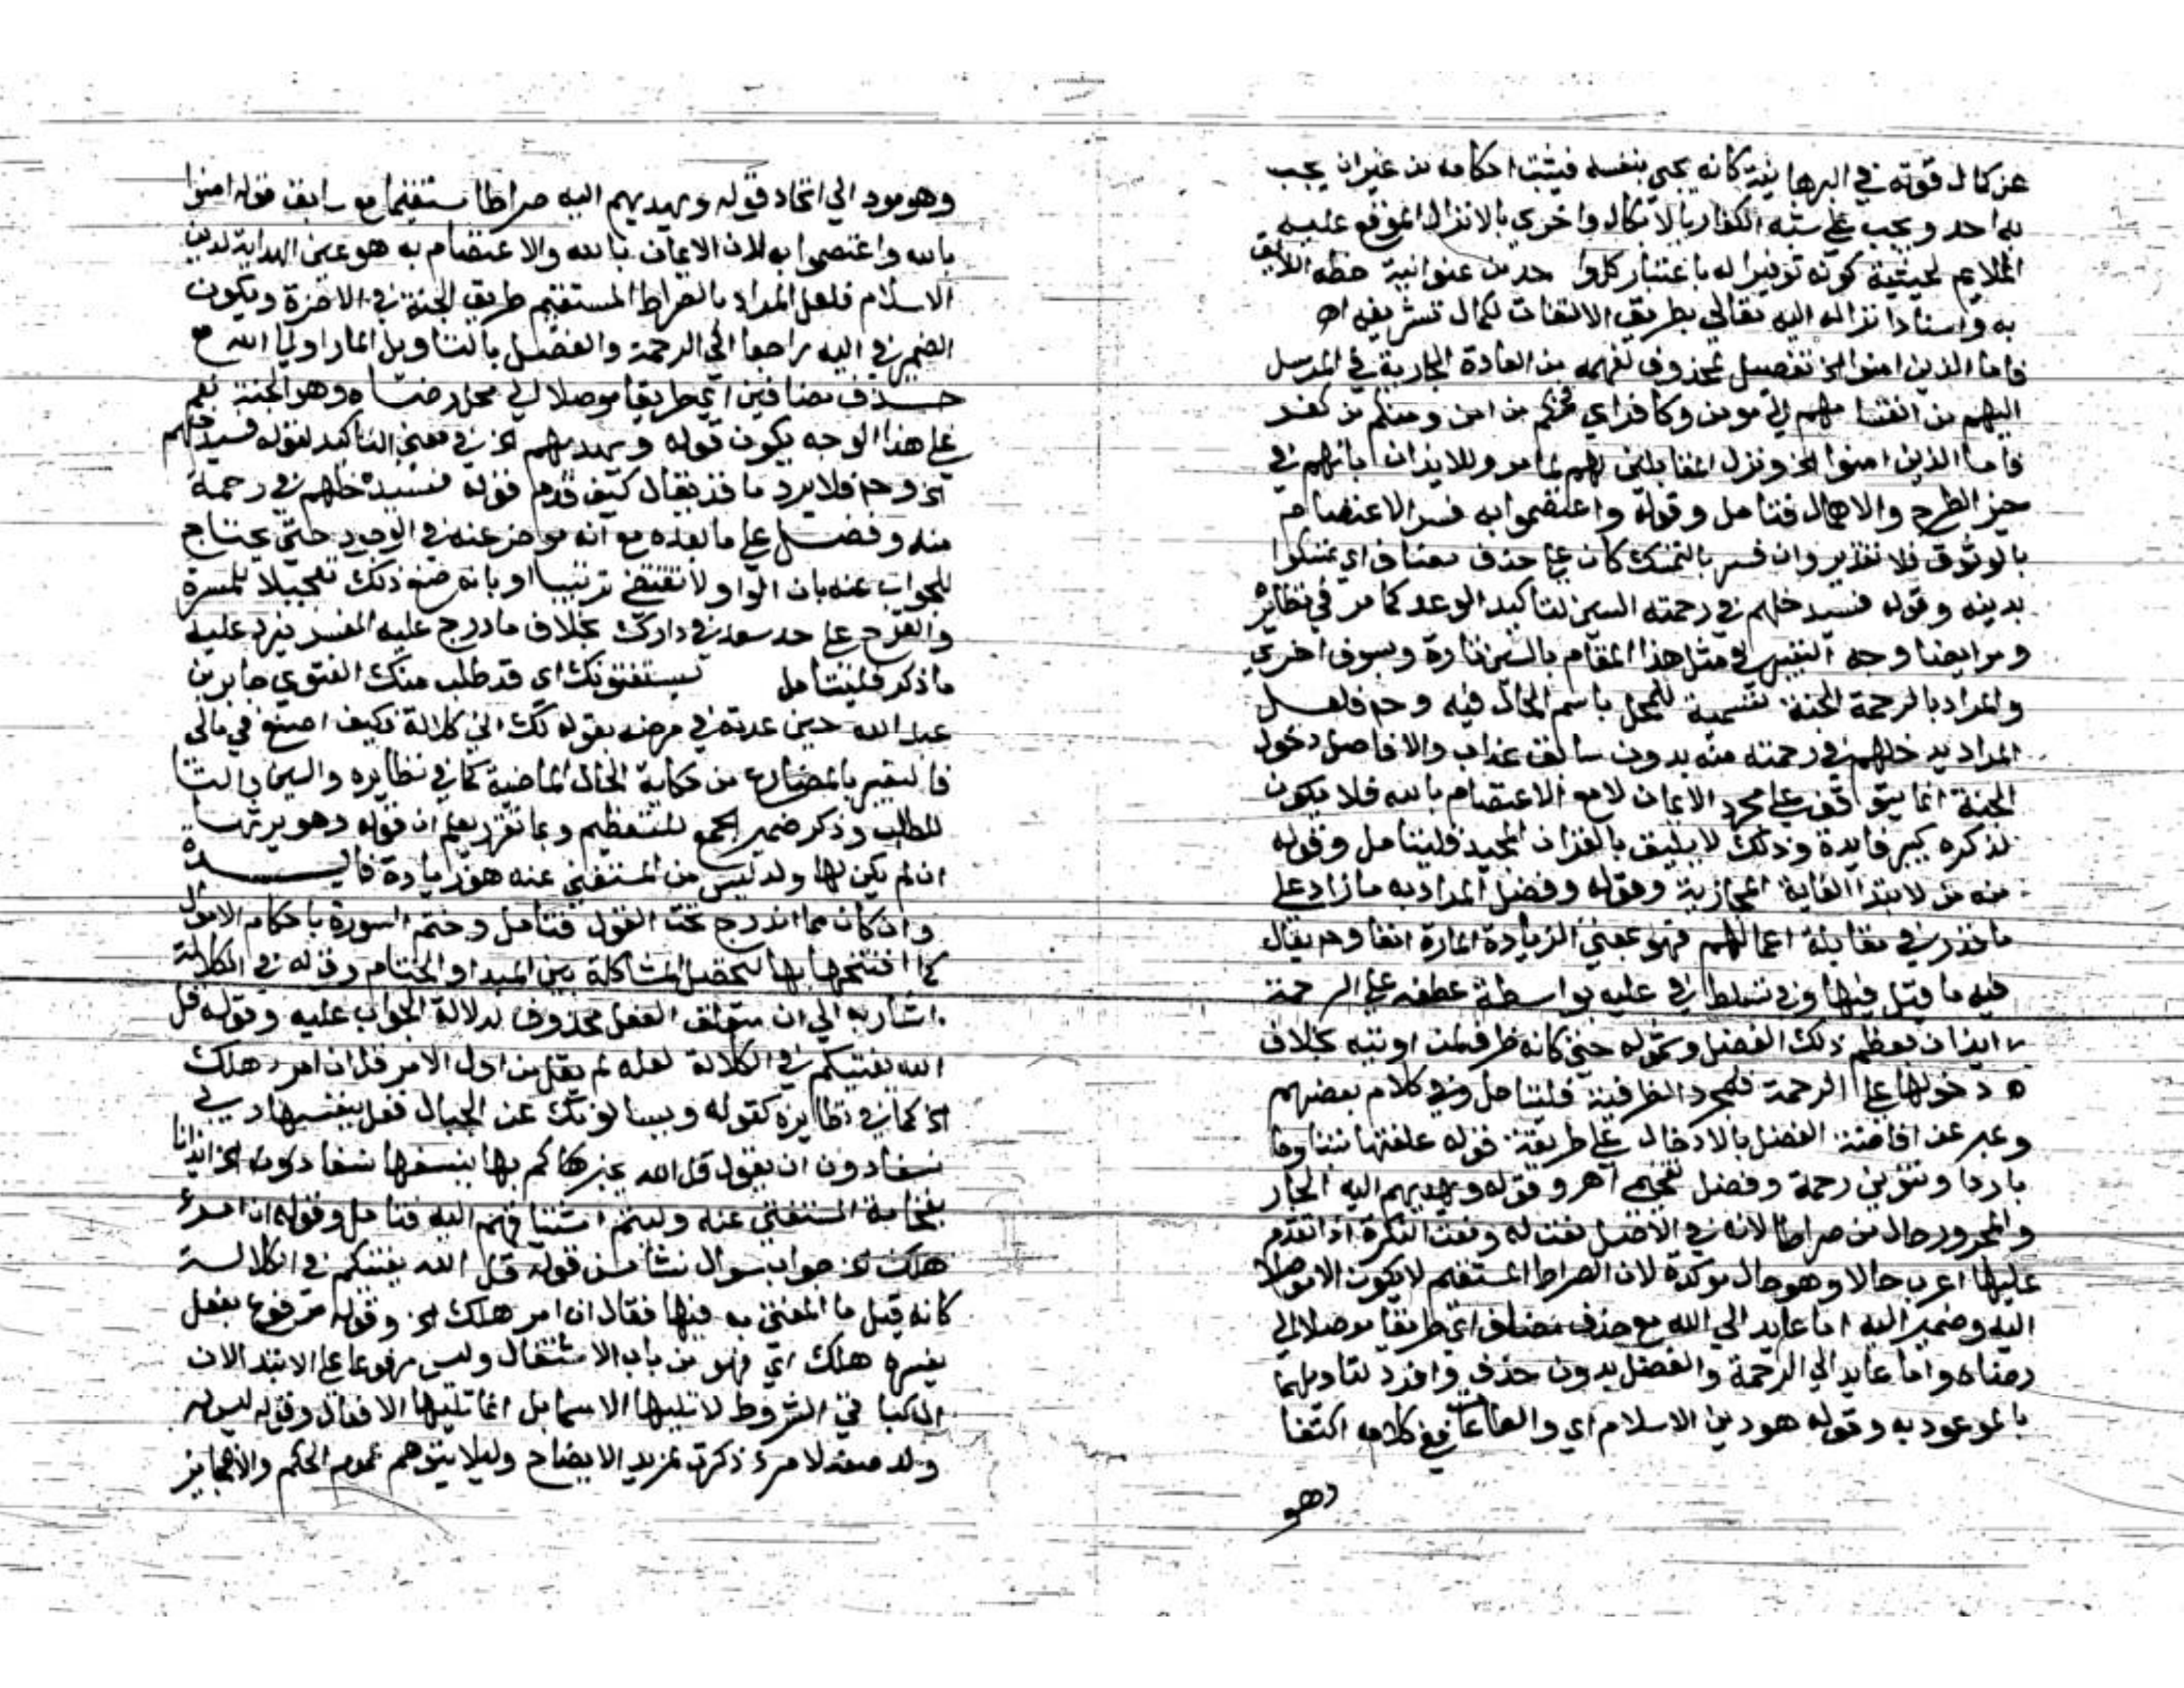 عن كمال قوته في البرهانية كانه يجي بنفسه فيثبت احكامه من غير ان يجب
به احد ويجب على شبه الكفار بالابكال واخرى بالانزال الموقع عليه
الملايم لحيثية كونه توفيرا له باعتبار كل واحد من عنوانية حظه اللايق
به واسناد انزاله اليه تعالى بطريق الالتفات لكمال تشريفه اه
فاما الذين امنوا الخ تفصيل لمحذوف نفهمه من العادة الجارية في المرسل
اليهم من انقسامهم الى مومن وكافر اي فمنكم من امن ومنكم من كفر
فاما الذين امنوا الخ وترك المقابلين لهم لما مر وللايذان بانهم في
حيز الطرح والاهمال فتامل وقوله واعتصموا به فسر الاعتصام
بالوثوق فلا تقدير وان فسر بالتمسك كان على حذف مضاف اي تمسكوا
بدينه وقوله فسيدخلهم في رحمته السين لتاكيد الوعد كما مر في نظائره
ومر ايضا وجه التعبير في مثل هذا المقام بالسين تارة وبسوف اخرى
والمراد بالرحمة الجنة تسمية للمحل باسم الحال فيه وح فلعل
المراد يدخلهم في رحمته منه بدون سالف عذاب والا فاصل دخول
الجنة انما يتوقف على مجرد الايمان لا مع الاعتصام بالله فلا يكون
لذكره كبير فايدة وذلك لا يليق بالقران المجيد فليتامل وقوله
منه من لابتدا الغاية المجازية وقوله وفضل المراد به ما زاد على
ما قدر في مقابلة اعمالهم فهو بمعنى الزيادة المارة انفا وح يقال
فيه ما قيل فيها وفي تسلط في عليه بواسطة عطفه على الرحمة
ايذان بعظم ذلك الفضل وشموله حتى كانه ظرف لمن اوتيه بخلاف
دخولها على الرحمة فلمجرد الظرفية فليتامل وفي كلام بعضهم
وعبر عن افاضة الفضل بالادخال على طريقة قوله علفتها تبنا وما
باردا وتنوين رحمة وفضل تفخيم اهر وقوله ويهديهم اليه الجار
والمجرور حال من صراطا لانه في الاصل نعت له ونعت النكرة اذا تقدم
عليها اعرب حالا وهو حال موكدة لان الصراط المستقيم لا يكون الا موصلا
اليه وضمير اليه اما عايد الى الله مع حذف مضاف اي طريقا موصلا الى
رضاه واما عايد الى الرحمة والفضل بدون حذف وافرد لتاويلهما
بالموعود به وقوله هو دين الاسلام اي والطاعات ففي كلامه اكتفا
وهو
وهو مود الى اتحاد قوله ويهديهم اليه صراطا مستقيما مع سابق قوله امنوا
بالله واعتصموا به لان الايمان بالله والاعتصام به هو عين الهداية لدين
الاسلام فلعل المراد بالصراط المستقيم طريق الجنة في الاخرة ويكون
الضمير في اليه راجعا الى الرحمة والفضل بالتاويل المار او الى الله مع
حذف مضافين اي طريقا موصلا الى محل رضاه وهو الجنة نعم
على هذا الوجه يكون قوله ويهديهم الخ في معنى التاكيد لقوله فسيدخلهم
الخ وح فلا يرد ما قد يقال كيف قدم قوله فسيدخلهم في رحمة
منه وفضل على ما بعده مع انه موخر عنه في الوجود حتى يحتاج
للجواب عنه بان الواو لا تقتضي ترتيبا او بانه صنع ذلك تعجيلا للمسرة
والفرح على حد سعد في دارك بخلاف ما درج عليه المفسر فيرد عليه
ما ذكر فليتامل يستفتونك اي قد طلب منك الفتوى جابر بن
عبد الله حين عدته في مرضه بقوله لك اني كلالة فكيف اصنع في مالي
فالتعبير بالمضارع من حكاية الحال الماضية كما في نظايره والسين والتا
للطلب وذكر ضمير الجمع للتعظيم وبما تقرر يعلم ان قوله وهو يرثها
ان لم يكن لها ولد ليس من المستفتى عنه هو زيادة فايدة
وان كان مما اندرج تحت القول فتامل وختم السورة باحكام الاموال
كما افتتحها بها لتحصل المشاكلة بين المبدا والختام وقوله في الكلالة
اشار به الى ان متعلق الفعل محذوف لدلالة الجواب عليه وقوله قل
الله يفتيكم في الكلالة لعله لم يقل من اول الامر قل ان امرؤ هلك
الخ كما في نظايره كقوله ويسالونك عن الجبال فقل ينسفها ربي
نسفا دون ان يقول قل الله يخبركم بها ينسفها نسفا دونه الخ ايذانا
بفخامة المستفتى عنه وليتم استثنافهم اليه فتامل وقوله ان امرؤ
هلك الخ جواب سوال نشا من قوله قل الله يفتيكم في الكلالة
كانه قيل ما المفتى به فيها فقال ان امرؤ هلك الخ وقوله مرفوع بفعل
يفسره هلك اي فهو من باب الاشتغال وليس مرفوعا على الابتدا لان
ادوات الشروط لا تليها الاسما بل انما تليها الافعال وقوله ليس له
ولد صفة لامرؤ ذكرت لمزيد الايضاح وليلا يتوهم عموم الحكم والا فجايز